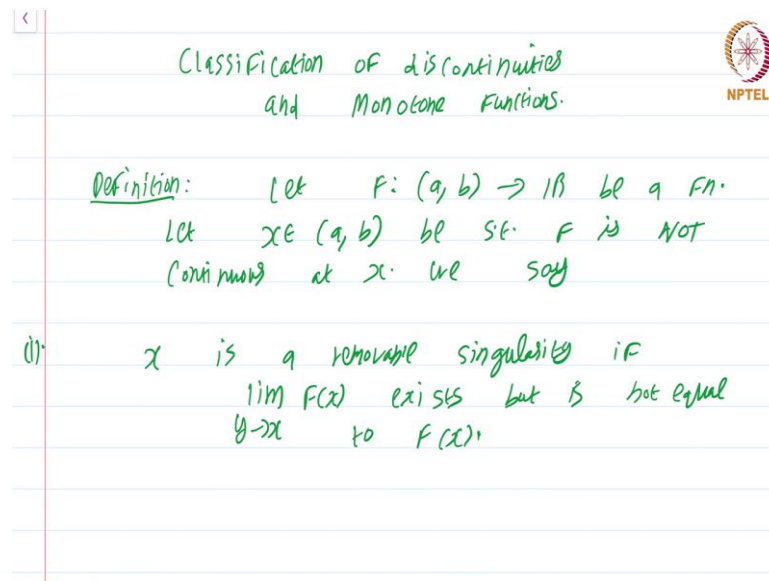 Classification of discontinuities
and Monotone Functions.
NPTEL
Definition: Let F: (a, b) → ℝ be a Fn.
Let x ∈ (a, b) be s.t. F is NOT
Continuous at x. We say
(i). x is a removable singularity if
lim F(x) exists but is not equal
y→x to F(x).